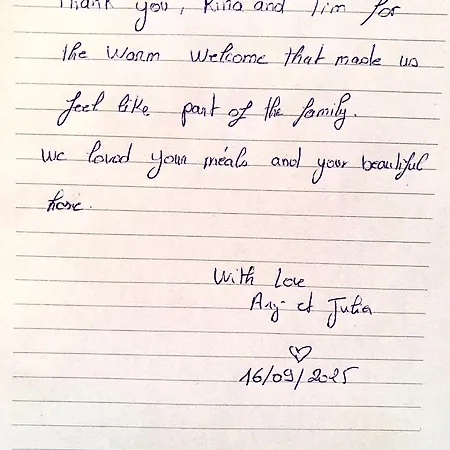 Thank you, Rina and Tim for
the warm welcome that made us
feel like part of the family.
We loved your meals and your beautiful
home.
With Love
et Julia
16/09/2025